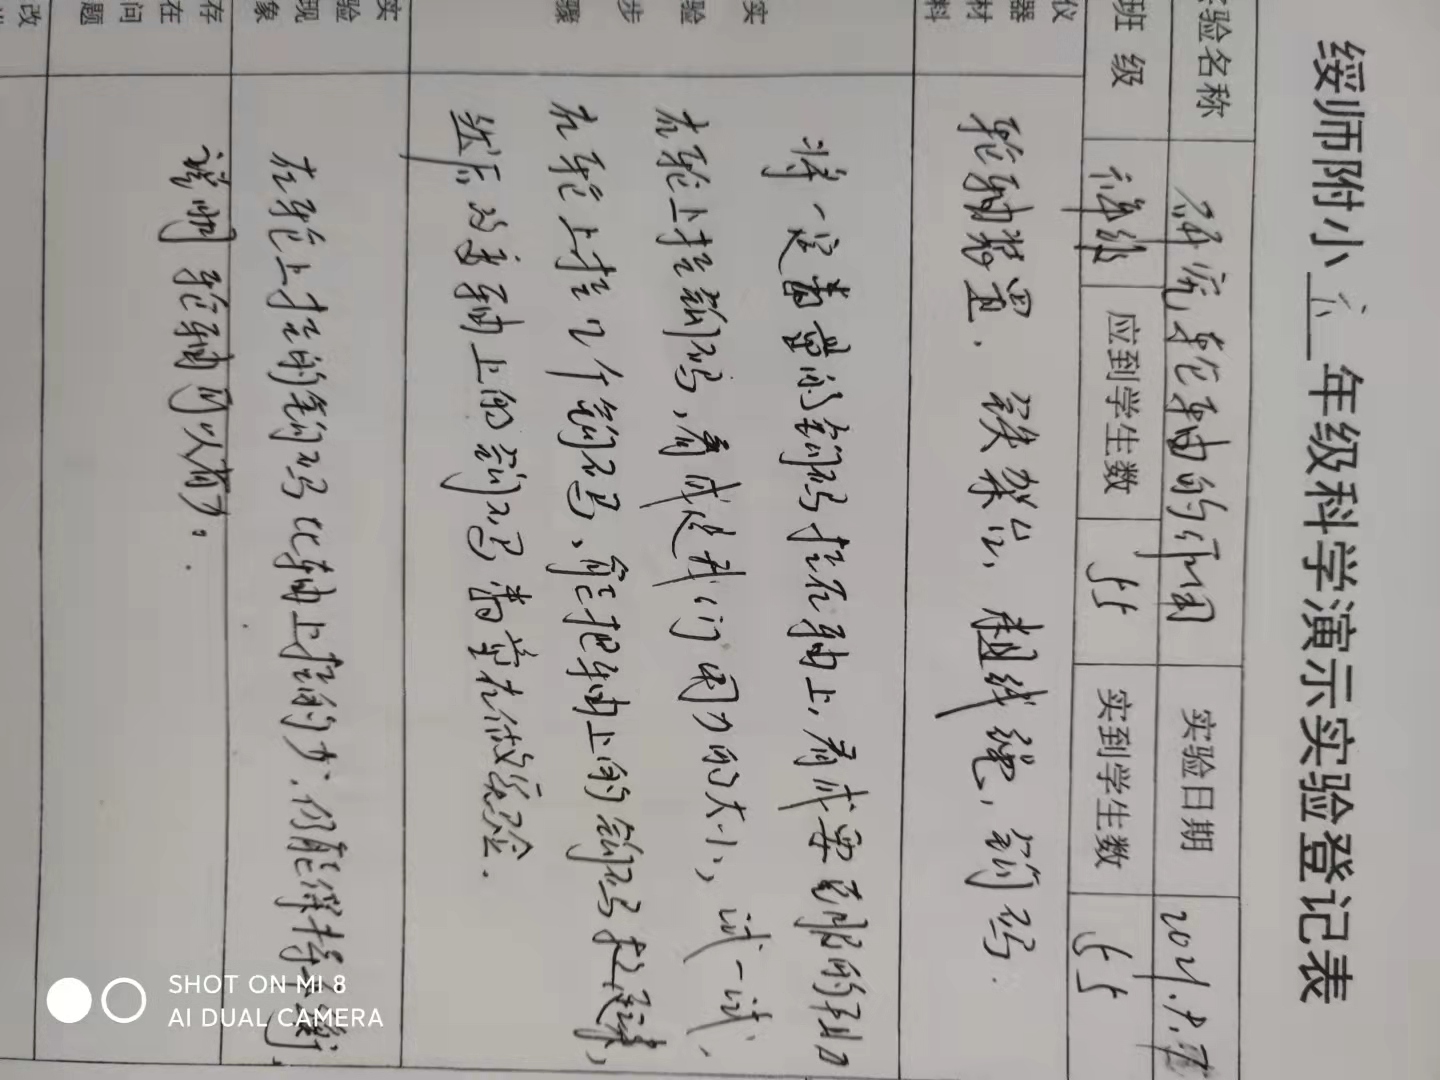 绥师附小 六 年级科学演示实验登记表
验名称 研究轮轴的作用 实验日期 2021.9.
班级 应到学生数 55 实到学生数 55
仪器材料 轮轴装置、铁架台、粗线绳、钩码:
实验步骤
将一定数量的钩码挂在轴上,看成要克服的阻力
在轮上挂钩码,看成是我们用力的大小,试一试,
在轮上挂几个钩码,能把轴上的钩码拉起来,
然后改变轴上的钩码数量在做实验.
实验现象
在轮上挂的钩码比轴上挂的少,仍能保持平衡,
说明轮轴可以省力.
存在问题
改
SHOT ON MI 8
AI DUAL CAMERA